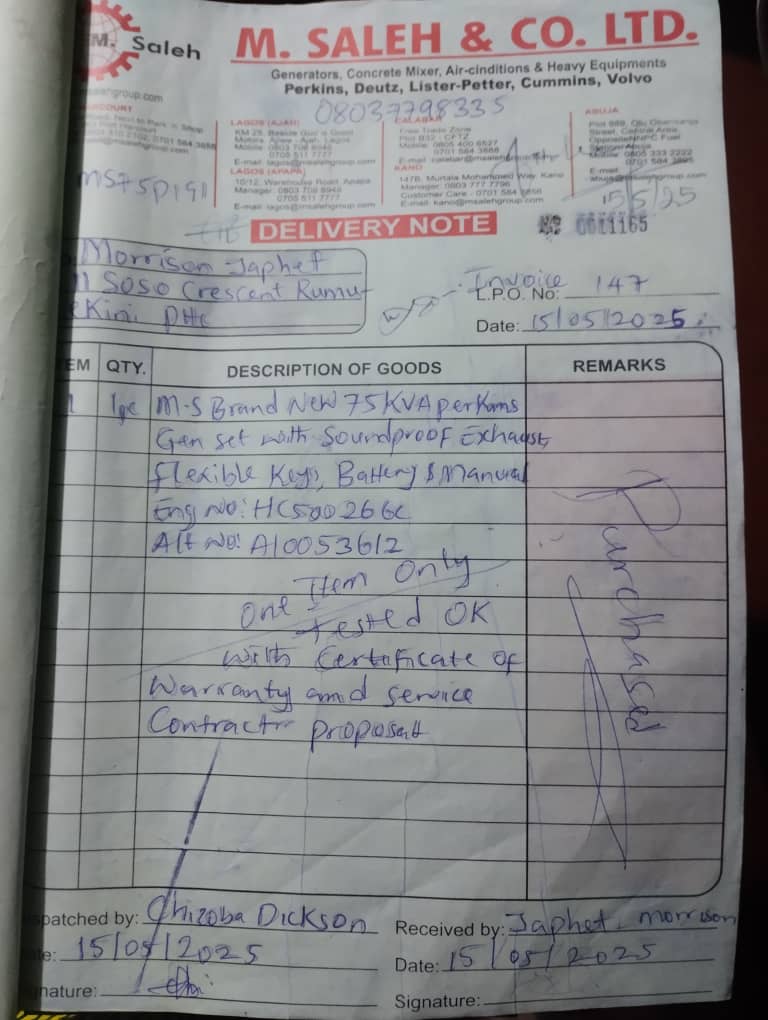 M. Saleh
M. SALEH & CO. LTD.
Generators, Concrete Mixer, Air-cinditions & Heavy Equipments
Perkins, Deutz, Lister-Petter, Cummins, Volvo
08037798335
LAGOS (AJAH)
Mobile: 0803 708 8948
0705 511 7777
E-mail: lagos@msalehgroup.com
LAGOS (APAPA)
10/12, Warehouse Road, Apapa
Manager: 0803 708 8948
0705 511 7777
E-mail: lagos@msalehgroup.com
CALABAR
Free Trade Zone
Mobile: 0805 400 6527
0701 584 3868
KANO
147B, Murtala Mohammed Way, Kano
Manager: 0803 777 7796
E-mail: kano@msalehgroup.com
ABUJA
MS75P191
15/5/25
DELIVERY NOTE
0011165
Morrison Japhet
11 Soso Crescent Rumu-
ekini PHC
Invoice
L.P.O. No: 147
Date: 15/05/2025
EM QTY. DESCRIPTION OF GOODS REMARKS
1 1pc M-S Brand New 75KVA perkins
Gen set with Soundproof Exhaust
flexible Keys, Battery & Manual
Eng No: HC500266C
Alt No: A10053612
One Item Only
tested OK
with Certificate of
Warranty and service
Contract proposal
Purchased
patched by: Chizoba Dickson
te: 15/05/2025
nature:
Received by: Japhet morrison
Date: 15/05/2025
Signature: